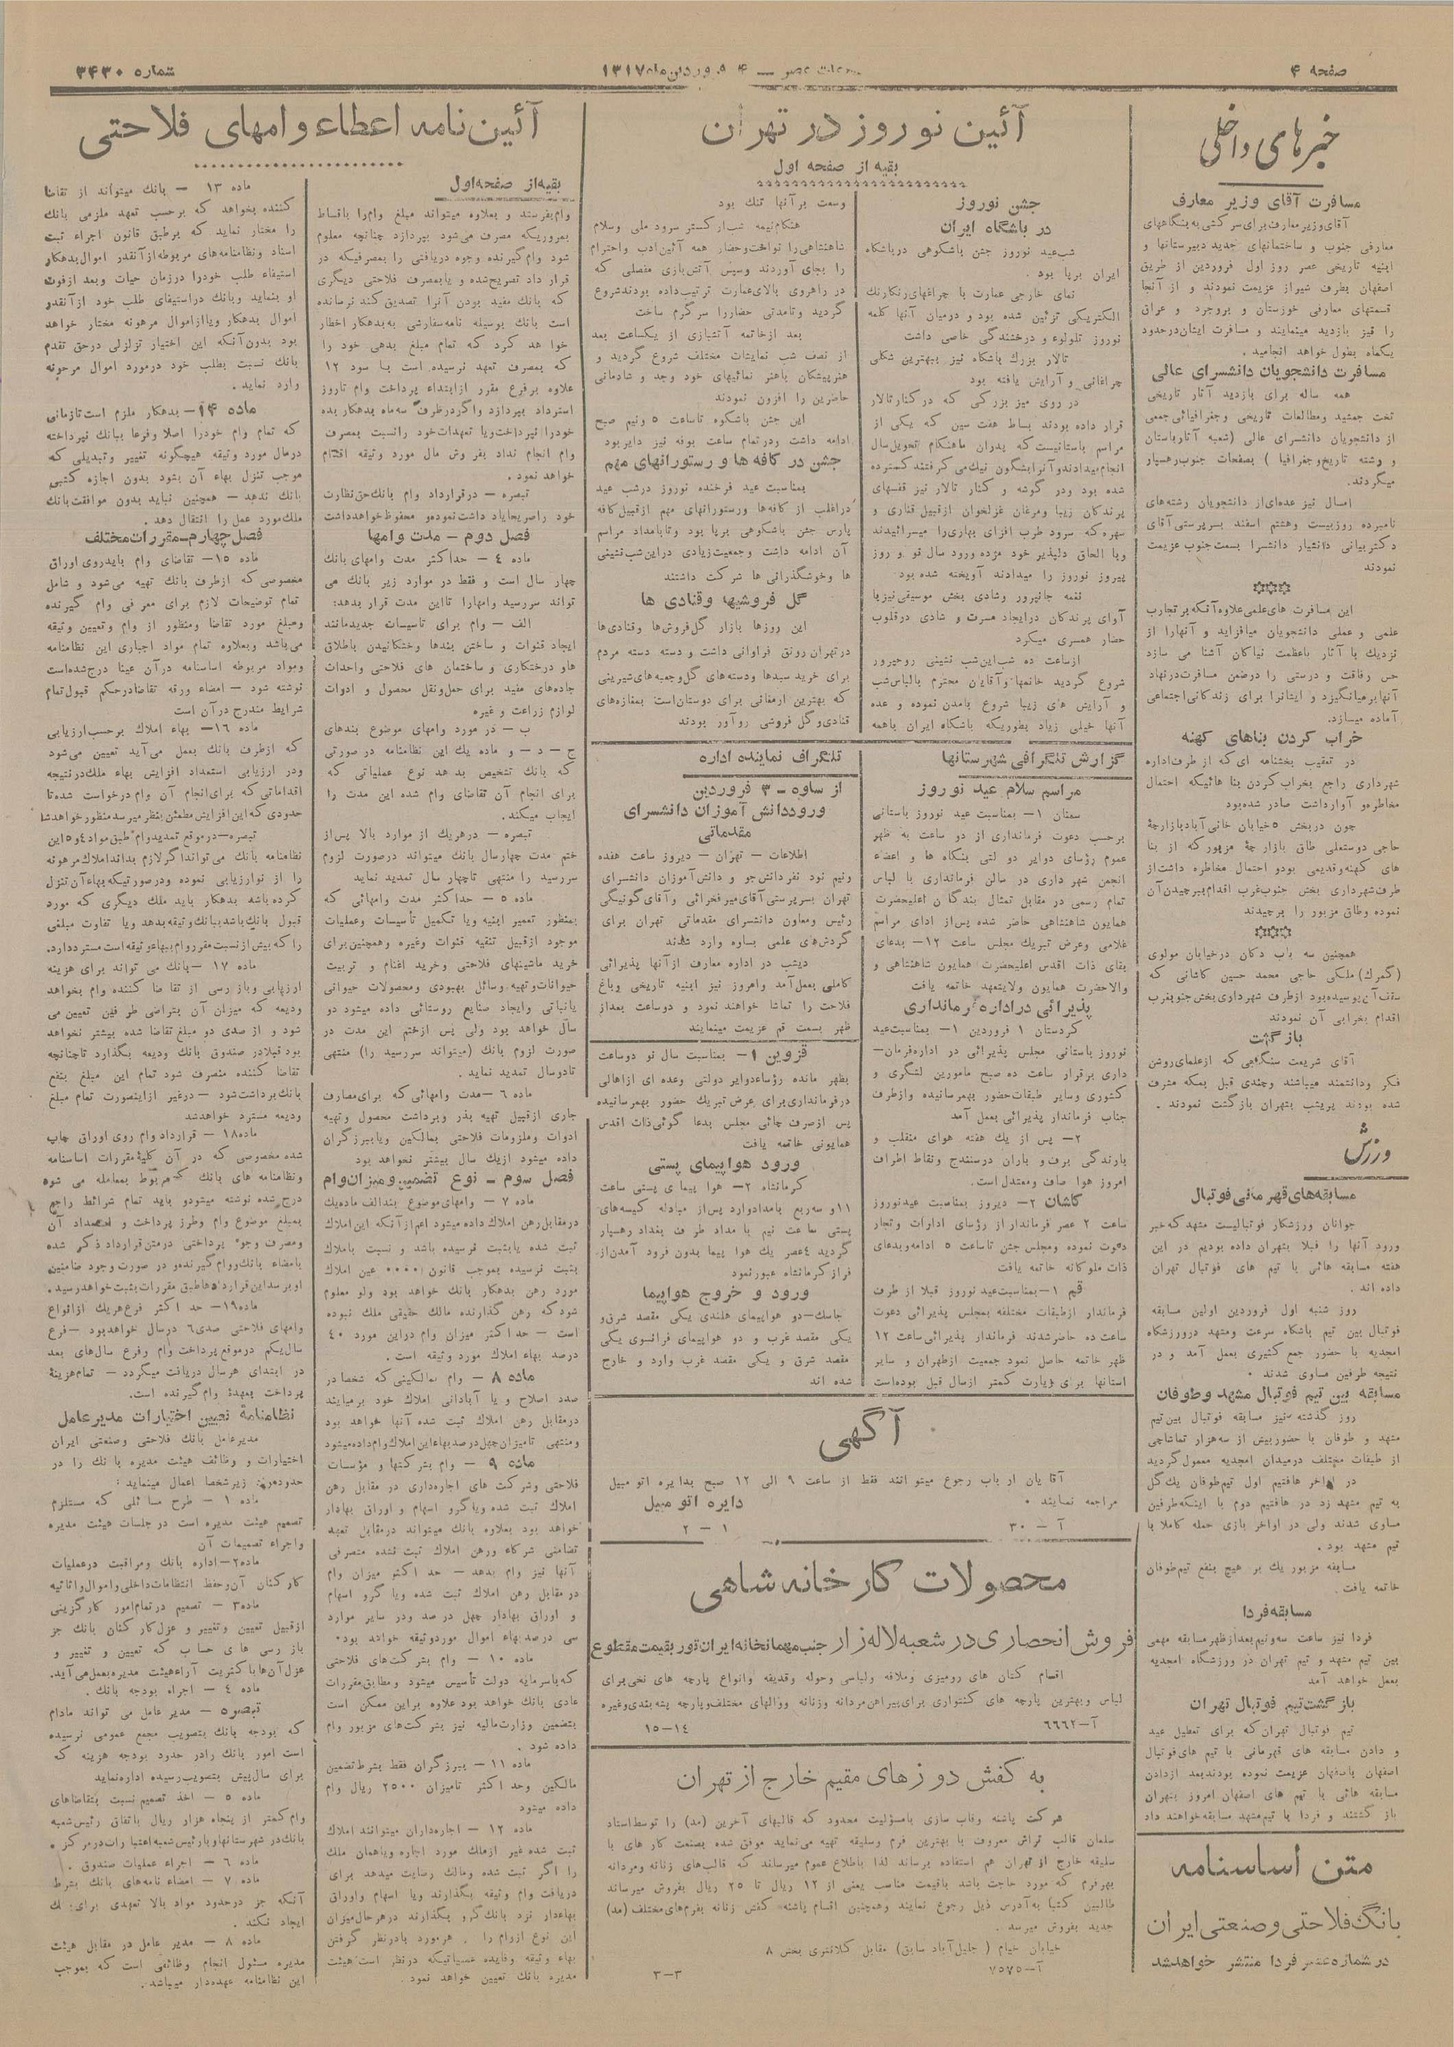 صفحه ۴
شماره ۳۴۳۰
خبرهای داخلی
مسافرت آقای وزیر معارف
آقای وزیر معارف برای سرکشی به بنگاههای
معارفی جنوب و ساختمانهای جدید دبیرستانها و
ابنیه تاریخی عصر روز اول فروردین از طریق
اصفهان بطرف شیراز عزیمت نمودند و از آنجا
قسمتهای معارفی خوزستان و بروجرد و عراق
را نیز بازدید مینمایند و مسافرت ایشان درحدود
یکماه بطول خواهد انجامید.
مسافرت دانشجویان دانشسرای عالی
همه ساله برای بازدید آثار تاریخی
تخت جمشید ومطالعات تاریخی وجغرافیائی جمعی
از دانشجویان دانشسرای عالی (شعبه آثار باستان
و رشته تاریخ وجغرافیا ) بصفحات جنوب رهسپار
میگردند.
امسال نیز عده‌ای از دانشجویان رشته‌های
نامبرده روز بیست وهشتم اسفند بسرپرستی آقای
دکتر بیانی دانشیار دانشسرا بسمت جنوب عزیمت
نمودند
این مسافرت های علمی علاوه آنکه بر تجارب
علمی و عملی دانشجویان میافزاید و آنهارا از
نزدیك با آثار باعظمت نیاکان آشنا می سازد
حس رفاقت و درستی را درضمن مسافرت درنهاد
آنها برمیانگیزد و ایشانرا برای زندگانی اجتماعی
آماده میسازد.
خراب کردن بناهای کهنه
در تعقیب بخشنامه ای که از طرف اداره
شهرداری راجع بخراب کردن بنا هائیکه احتمال
مخاطره و آوارداشت صادر شده بود
چون دربخش ۵ خیابان خانی آباد بازارچۀ
حاجی دوستعلی طاق بازارچۀ مزبور که از بنا
های کهنه وقدیمی بود و احتمال مخاطره داشت از
طرف شهرداری بخش جنوب غرب اقدام ببرچیدن آن
نموده وطاق مزبور را برچیدند
همچنین سه باب دکان درخیابان مولوی
(گمرك) ملکی حاجی محمد حسین کاشانی که
سقف آن پوسیده بود ازطرف شهرداری بخش جنوب غرب
اقدام بخرابی آن نمودند
بازگشت
آقای شریعت سنگلجی که ازعلمای روشن
فکر ودانشمند میباشند وچندی قبل بمکه مشرف
شده بودند پریشب بتهران بازگشت نمودند.
ورزش
مسابقه‌های قهرمانی فوتبال
جوانان ورزشکار فوتبالیست مشهد که خبر
ورود آنها را قبلا بتهران داده بودیم در این
هفته مسابقه هائی با تیم های فوتبال تهران
داده اند.
روز شنبه اول فروردین اولین مسابقه
فوتبال بین تیم باشگاه سرعت ومشهد درورزشگاه
امجدیه با حضور جمع کثیری بعمل آمد و در
نتیجه طرفین مساوی شدند.
مسابقه بین تیم فوتبال مشهد وطوفان
روز گذشته نیز مسابقه فوتبال بین تیم
مشهد و طوفان با حضور بیش از سه هزار تماشاچی
از طبقات مختلف درمیدان امجدیه معمول گردید
در آخر هافتیم اول تیم طوفان یك گل
به تیم مشهد زد در هافتیم دوم با اینکه طرفین
مساوی شدند ولی در اواخر بازی حمله کاملا با
تیم مشهد بود.
مسابقه مزبور یك بر هیچ بنفع تیم طوفان
خاتمه یافت.
مسابقه فردا
فردا نیز ساعت سه ونیم بعدازظهر مسابقه مهمی
بین تیم مشهد و تیم تهران در ورزشگاه امجدیه
بعمل خواهد آمد
بازگشت تیم فوتبال تهران
تیم فوتبال تهران که برای تعطیل عید
و دادن مسابقه های قهرمانی با تیم های فوتبال
اصفهان باصفهان عزیمت نموده بودند بعد ازدادن
مسابقه هائی با تیم های اصفهان امروز بتهران
باز گشتند و فردا با تیم مشهد مسابقه خواهند داد
متن اساسنامه
بانگ فلاحتی و صنعتی ایران
در شماره عصر فردا منتشر خواهد شد
آئین نوروز در تهران
بقیه از صفحه اول
جشن نوروز
در باشگاه ایران
شب عید نوروز جشن باشکوهی درباشگاه
ایران برپا بود.
نمای خارجی عمارت با چراغهای رنگارنك
الکتریکی تزئین شده بود و درمیان آنها کلمه
نوروز تلولوء و درخشندگی خاصی داشت
تالار بزرك باشگاه نیز ببهترین شکلی
چراغانی و آرایش یافته بود
در روی میز بزرگی که در کنار تالار
قرار داده بودند بساط هفت سین که یکی از
مراسم باستانیست که پدران ماهنگام تحویل سال
انجام میدادند و آنرا بشگون نیك می گرفتند گسترده
شده بود ودر گوشه و کنار تالار نیز قفسهای
پرندگان زیبا ومرغان غزلخوان ازقبیل قناری و
سهره که سرود طرب افزای بهاری را میسرائیدند
وبا الحاق دلپذیر خود مژده ورود سال نو و روز
پیروز نوروز را میدادند آویخته شده بود.
نغمه جانپرور وشادی بخش موسیقی نیز با
آوای پرندگان درایجاد مسرت و شادی درقلوب
حضار همسری میکرد
ازساعت ده شب این شب نشینی روحپرور
شروع گردید خانمها و آقایان محترم بالباس شب
و آرایش های زیبا شروع بآمدن نموده و عده
آنها خیلی زیاد بطوریکه باشگاه ایران باهمه
وسعت برآنها تنك بود
هنگام نیمه شب ارکستر سرود ملی وسلام
شاهنشاهی را نواخت وحضار همه آئین ادب واحترام
را بجای آوردند وسپس آتش بازی مفصلی که
در راهروی بالای عمارت ترتیب داده بودند شروع
گردید وتامدتی حضاررا سرگرم ساخت
بعد ازخاتمه آتشبازی از یکساعت بعد
از نصف شب نمایشات مختلف شروع گردید و
هنرپیشگان باهنر نمائیهای خود وجد و شادمانی
حاضرین را افزون نمودند
این جشن باشکوه تاساعت ۵ ونیم صبح
ادامه داشت ودرتمام ساعت بوفه نیز دایر بود
جشن در کافه ها و رستورانهای مهم
بمناسبت عید فرخنده نوروز درشب عید
دراغلب از کافه‌ها ورستورانهای مهم ازقبیل کافه
پارس جشن باشکوهی برپا بود وتابامداد مراسم
آن ادامه داشت وجمعیت زیادی دراین شب نشینی
ها وخوشگذرانی ها شرکت داشتند
گل فروشیها و قنادی ها
این روزها بازار گل فروش‌ها وقنادی‌ها
درتهران رونق فراوانی داشت و دسته دسته مردم
برای خرید سبدها ودسته‌های گل وجعبه‌های شیرینی
که بهترین ارمغانی برای دوستان است بمغازه‌های
قنادی و گل فروشی رو آور بودند
گزارش تلگرافی شهرستانها
مراسم سلام عید نوروز
سمنان ۱- بمناسبت عید نوروز باستانی
برحسب دعوت فرمانداری از دو ساعت به ظهر
عموم رؤسای دوایر دولتی بنگاه ها و اعضاء
انجمن شهرداری در سالن فرمانداری با لباس
تمام رسمی در مقابل تمثال بندگان اعلیحضرت
همایون شاهنشاهی حاضر شده پس از ادای مراسم
غلامی وعرض تبریك مجلس ساعت ۱۲- بدعای
بقای ذات اقدس اعلیحضرت همایون شاهنشاهی و
والاحضرت همایون ولایتعهد خاتمه یافت
پذیرائی دراداره فرمانداری
کردستان ۱ فروردین ۱- بمناسبت عید
نوروز باستانی مجلس پذیرائی در اداره فرمان-
داری برقرار ساعت ده صبح مامورین لشگری و
کشوری وسایر طبقات حضور بهمرسانیده وازطرف
جناب فرماندار پذیرائی بعمل آمد
۲- پس از یك هفته هوای منقلب و
بارندگی برف و باران درسنندج ونقاط اطراف
امروز هوا صاف ومعتدل است.
کاشان ۲- دیروز بمناسبت عید نوروز
ساعت ۲ عصر فرماندار از رؤسای ادارات وتجار
دعوت نموده ومجلس جشن تاساعت ۵ ادامه وبدعای
ذات ملوکانه خاتمه یافت
قم ۱- بمناسبت عید نوروز قبلا از طرف
فرماندار ازطبقات مختلفه بمجلس پذیرائی دعوت
ساعت ده حاضر شدند فرماندار پذیرائی ساعت ۱۲
ظهر خاتمه حاصل نمود جمعیت ازطهران و سایر
استانها برای زیارت کمتر ازسال قبل بوده است
تلگراف نماینده اداره
از ساوه - ۳ فروردین
ورود دانش آموزان دانشسرای
مقدماتی
اطلاعات - تهران - دیروز ساعت هفده
ونیم نود نفر دانش‌جو و دانش آموزان دانشسرای
تهران بسرپرستی آقای میرفخرائی و آقای گونیگی
رئیس ومعاون دانشسرای مقدماتی تهران برای
گردش‌های علمی بساوه وارد شدند
دیشب در اداره معارف ازآنها پذیرائی
کاملی بعمل آمد وامروز نیز ابنیه تاریخی وباغ
فلاحت را تماشا خواهند نمود و دوساعت بعداز
ظهر بسمت قم عزیمت مینمایند
قزوین ۱- بمناسبت سال نو دوساعت
بظهر مانده رؤساءدوایر دولتی وعده ای ازاهالی
درفرمانداری برای عرض تبریك حضور بهمرسانیده
پس ازصرف چائی مجلس بدعا گوئی ذات اقدس
همایونی خاتمه یافت
ورود هواپیمای پستی
کرمانشاه ۲- هوا پیمای پستی ساعت
۱۱ و سه ربع بامداد وارد پس از مبادله کیسه‌های
پستی ساعت نیم با مداد طرف بغداد رهسپار
گردید ۴ عصر یك هوا پیما بدون فرود آمدن از
فراز کرمانشاه عبور نمود
ورود و خروج هواپیما
جاسك- دو هواپیمای هلندی یکی مقصد شرق و
یکی مقصد غرب و دو هواپیمای فرانسوی یکی
مقصد شرق و یکی مقصد غرب وارد و خارج
شده اند
آگهی
آقایان ارباب رجوع میتوانند فقط از ساعت ۹ الی ۱۲ صبح بدایره اتومبیل
مراجعه نمایند.
دایره اتومبیل
آ - ۳۰
۱ - ۲
محصولات کارخانه شاهی
فروش انحصاری در شعبه لاله زار جنب مهمانخانه ایران تور بقیمت مقطوع
اقسام کتان های رومیزی وملافه ولباسی وحوله وقدیفه وانواع پارچه های نخی برای
لباس وبهترین پارچه های کتنواری برای پیراهن مردانه وزنانه ووالهای مختلف و پارچه پشه بندی وغیره
آ-۶۶۶۲
۱۴-۱۵
به کفش دوزهای مقیم خارج از تهران
شرکت پاشنه وقاب سازی بامسؤلیت محدود که قالبهای آخرین (مد) را توسط استاد
سلمان قالب تراش معروف با بهترین فرم وسلیقه تهیه می‌نماید موفق شده بصنعت کارهای با
سلیقه خارج ازتهران هم استفاده برساند لذا باطلاع عموم میرساند که قالب‌های زنانه ومردانه
بهرفرم که مورد حاجت باشد باقیمت مناسب یعنی از ۱۲ ریال تا ۲۵ ریال بفروش میرساند
طالبین کتباً به آدرس ذیل رجوع نمایند وهمچنین اقسام پاشنه، کفش زنانه بفرم‌های مختلف (مد)
جدید بفروش میرسد.
خیابان خیام ( جلیل آباد سابق) مقابل کلانتری بخش ۸
آ-۷۵۷۵
۳-۳
آئین نامه اعطاء وامهای فلاحتی
بقیه از صفحه اول
وام بفرستد و بعلاوه میتواند مبلغ وام را باقساط
بمروریکه مصرف می‌شود بپردازد چنانچه معلوم
شود وام گیرنده وجوه دریافتی را بمصرفیکه در
قرار داد تصریح شده و یا بمصرف فلاحتی دیگری
که بانك مفید بودن آنرا تصدیق کند نرسانده
است بانك بوسیله نامه سفارشی به بدهکار اخطار
خواهد کرد که تمام مبلغ بدهی خود را
که بمصرف تعهد نرسیده است با سود ۱۲
علاوه برفرع مقرر ازابتداء پرداخت وام تاروز
استرداد بپردازد واگر درظرف سه ماه بدهکار بده
خودرا نپرداخت ویا تعهدات خود رانسبت بمصرف
وام انجام نداد بفروش مال مورد وثیقه اقدام
خواهد نمود.
تبصره - درقرارداد وام بانك حق نظارت
خود را صریحا یاد داشت نموده و محفوظ خواهد داشت
فصل دوم - مدت وامها
ماده ۴ - حداکثر مدت وامهای بانك
چهار سال است و فقط در موارد زیر بانك می
تواند سررسید وامهارا تااین مدت قرار بدهد:
الف - وام برای تاسیسات جدید مانند
ایجاد قنوات و ساختن بندها وخشکانیدن باطلاق
ها و درختکاری و ساختمان های فلاحتی واحداث
جاده‌های مفید برای حمل ونقل محصول و ادوات
لوازم زراعت و غیره
ب - در مورد وامهای موضوع بندهای
ج - د - و ماده یك این نظامنامه در صورتی
که بانك تشخیص بدهد نوع عملیاتی که
برای انجام آن تقاضای وام شده این مدت را
ایجاب میکند.
تبصره - درهریك از موارد بالا پس از
ختم مدت چهارسال بانك میتواند درصورت لزوم
سررسید را منتهی تاچهار سال تمدید نماید
ماده ۵ - حداکثر مدت وامهائی که
بمنظور تعمیر ابنیه ویا تکمیل تأسیسات وعملیات
موجود ازقبیل تنقیه قنوات وغیره وهمچنین برای
خرید ماشینهای فلاحتی وخرید اغنام و تربیت
حیوانات وتهیه وسائل بهبودی ومحصولات حیوانی
یانباتی وایجاد صنایع روستائی داده میشود دو
سال خواهد بود ولی پس ازختم این مدت در
صورت لزوم بانك (میتواند سررسید را) منتهی
تادوسال تمدید نماید.
ماده ۶ - مدت وامهائی که برای مصارف
جاری ازقبیل تهیه بذر وبرداشت محصول و تهیه
ادوات وملزومات فلاحتی بمالکین ویا برزگران
داده میشود ازیك سال بیشتر نخواهد بود
فصل سوم - نوع تضمین و میزان وام
ماده ۷ - وامهای موضوع بند الف ماده یك
درمقابل رهن املاك داده میشود اعم ازآنکه این املاك
ثبت شده یا بثبت نرسیده باشد و نسبت باملاك
بثبت نرسیده بموجب قانون (۰۰۰۰ عین املاك
مورد رهن بدهکار بانك خواهد بود ولو معلوم
شود که رهن گذارنده مالك حقیقی ملك نبوده
است - حداکثر میزان وام دراین مورد ۴۰
درصد بهاء املاك مورد وثیقه است.
ماده ۸ - وام بمالکینی که شخصا در
صدد اصلاح و یا آبادانی املاك خود برمیایند
درمقابل رهن املاك ثبت شده آنها خواهد بود
ومنتهی تامیزان چهل درصد بهاء این املاك وام داده میشود
ماده ۹ - وام بشرکتها و مؤسسات
فلاحتی وشرکت های اجاره‌داری در مقابل رهن
املاك ثبت شده ویا گرو اسهام و اوراق بهادار
خواهد بود بعلاوه بانك میتواند درمقابل تعهد
تضامنی شرکاء ورهن املاك ثبت شده متصرفی
آنها نیز وام بدهد - حد اکثر میزان وام
در مقابل رهن املاك ثبت شده ویا گرو اسهام
و اوراق بهادار چهل در صد ودر سایر موارد
سی درصد بهاء اموال مورد وثیقه خواهد بود.
ماده ۱۰ - وام بشرکت‌های فلاحتی
که باسرمایه دولت تأسیس میشود ومطابق مقررات
عادی بانك خواهد بود علاوه براین ممکن است
بتضمین وزارت مالیه نیز بشرکت‌های مزبور وام
داده شود.
ماده ۱۱ - ببرزگران فقط بشرط تضمین
مالکین وحد اکثر تامیزان ۲۵۰۰ ریال وام
داده میشود
ماده ۱۲ - اجاره‌داران میتوانند املاك
ثبت شده غیر ازملك مورد اجاره ویاهمان ملك
را اگر ثبت شده ومالك رضایت میدهد برای
دریافت وام وثیقه بگذارند ویا اسهام واوراق
بهادار نزد بانك گرو بگذارند درهرحال میزان
این نوع ازوام را در هرمورد بادرنظر گرفتن
بهاء وثیقه وفایده عملیاتیکه درنظر است هیئت
مدیره بانك تعیین خواهد نمود
ماده ۱۳ - بانك میتواند از تقاضا
کننده بخواهد که برحسب تعهد ملزمی بانك
را مختار نماید که برطبق قانون اجراء ثبت
اسناد ونظامنامه‌های مربوطه ازآنقدر اموال بدهکار
استیفاء طلب خودرا درزمان حیات وبعد ازفوت
او بنماید وبانك دراستیفای طلب خود ازآنقدر
اموال بدهکار ویا ازاموال مرهونه مختار خواهد
بود بدون آنکه این اختیار تزلزلی درحق تقدم
بانك نسبت بطلب خود درمورد اموال مرهونه
وارد نماید.
ماده ۱۴- بدهکار ملزم است تازمانی
که تمام وام خودرا اصلا وفرعا ببانك نپرداخته
درمال مورد وثیقه هیچگونه تغییر وتبدیلی که
موجب تنزل بهاء آن بشود بدون اجازه کتبی
بانك ندهد - همچنین نباید بدون موافقت بانك
ملك مورد عمل را انتقال دهد.
فصل چهارم - مقررات مختلف
ماده ۱۵- تقاضای وام باید روی اوراق
مخصوصی که ازطرف بانك تهیه می‌شود و شامل
تمام توضیحات لازم برای معرفی وام گیرنده
ومبلغ مورد تقاضا ومنظور از وام وتعیین وثیقه
می‌باشد وبعلاوه تمام مواد اجباری این نظامنامه
ومواد مربوطه اساسنامه درآن عینا درج شده است
نوشته شود - امضاء ورقه تقاضا درحکم قبول تمام
شرایط مندرج درآن است
ماده ۱۶- بهاء املاك برحسب ارزیابی
که ازطرف بانك بعمل می‌آید تعیین می‌شود
ودر ارزیابی استعداد افزایش بهاء ملك درنتیجه
اقداماتی که برای انجام آن وام درخواست شده تا
حدودی که این افزایش مطمئن بنظر میرسد منظور خواهد شد
تبصره - درموقع تمدید وام طبق مواد ۴ و ۵ این
نظامنامه بانك می‌تواند اگر لازم بداند املاك مرهونه
را از نو ارزیابی نموده ودرصورتیکه بهاء آن تنزل
کرده باشد بدهکار باید ملك دیگری که مورد
قبول بانك باشد ببانك وثیقه بدهد ویا تفاوت مبلغی
را که بیش ازنسبت مقرر وام ببهاء وثیقه است مسترد دارد.
ماده ۱۷ - بانك می تواند برای هزینه
ارزیابی وبازرسی از تقاضا کننده وام بخواهد
ودیعه که میزان آن بتراضی طرفین تعیین می
شود و از صدی دو مبلغ تقاضا شده بیشتر نخواهد
بود قبلا در صندوق بانك ودیعه بگذارد تاچنانچه
تقاضا کننده منصرف شود تمام این مبلغ بنفع
بانك برداشت شود - درغیر ازاینصورت تمام مبلغ
ودیعه مسترد خواهد شد
ماده ۱۸ - قرارداد وام روی اوراق چاپ
شده مخصوصی که در آن کلیۀ مقررات اساسنامه
ونظامنامه های بانك مربوط بمعامله می شود
درج شده نوشته میشود و باید تمام شرائط راجع
بمبلغ موضوع وام وطرز پرداخت و استرداد آن
ومصرف وجوه پرداختی درمتن قرارداد ذکر شده
بامضاء بانك ووام گیرنده و در صورت وجود ضامنین
او برسد این قراردادها طبق مقررات بثبت خواهد رسید.
ماده ۱۹- حد اکثر فرع هریك ازانواع
وامهای فلاحتی صدی ۶ درسال خواهد بود - فرع
سال یکم درموقع پرداخت وام وفرع سال‌های بعد
در ابتدای هرسال دریافت میگردد - تمام هزینۀ
پرداخت بعهدۀ وام گیرنده است.
نظامنامۀ تعیین اختیارات مدیر عامل
مدیر عامل بانك فلاحتی وصنعتی ایران
اختیارات و وظائف هیئت مدیره بانك را در
حدود مرقومه زیر شخصا اعمال مینماید:
ماده ۱ - طرح مسائلی که مستلزم
تصمیم هیئت مدیره است در جلسات هیئت مدیره
واجراء تصمیمات آن
ماده ۲- اداره بانك ومراقبت درعملیات
کارکنان آن وحفظ انتظامات داخلی واموال واثاثیه
ماده ۳ - تصمیم درتمام امور کارگزینی
ازقبیل تعیین وتغییر و عزل کارکنان بانك جز
بازرسی های حساب که تعیین و تغییر و
عزل آن‌ها با کثریت آراء هیئت مدیره بعمل می‌آید.
ماده ۴ - اجراء بودجه بانك.
تبصره - مدیر عامل می تواند مادام
که بودجه بانك بتصویب مجمع عمومی نرسیده
است امور بانك رادر حدود بودجه هزینه که
برای سال پیش بتصویب رسیده اداره نماید
ماده ۵ - اخذ تصمیم نسبت بتقاضاهای
وام کمتر از پنجاه هزار ریال باتفاق رئیس شعبه
بانك در شهرستانها و با رئیس شعبه اعتبارات در مرکز.
ماده ۶ - اجراء عملیات صندوق.
ماده ۷ - امضاء نامه‌های بانك بشرط
آنکه جز درحدود مواد بالا تعهدی برای بانك
ایجاد نکند.
ماده ۸ - مدیر عامل در مقابل هیئت
مدیره مسئول انجام وظائفی است که بموجب
این نظامنامه عهده‌دار میباشد.